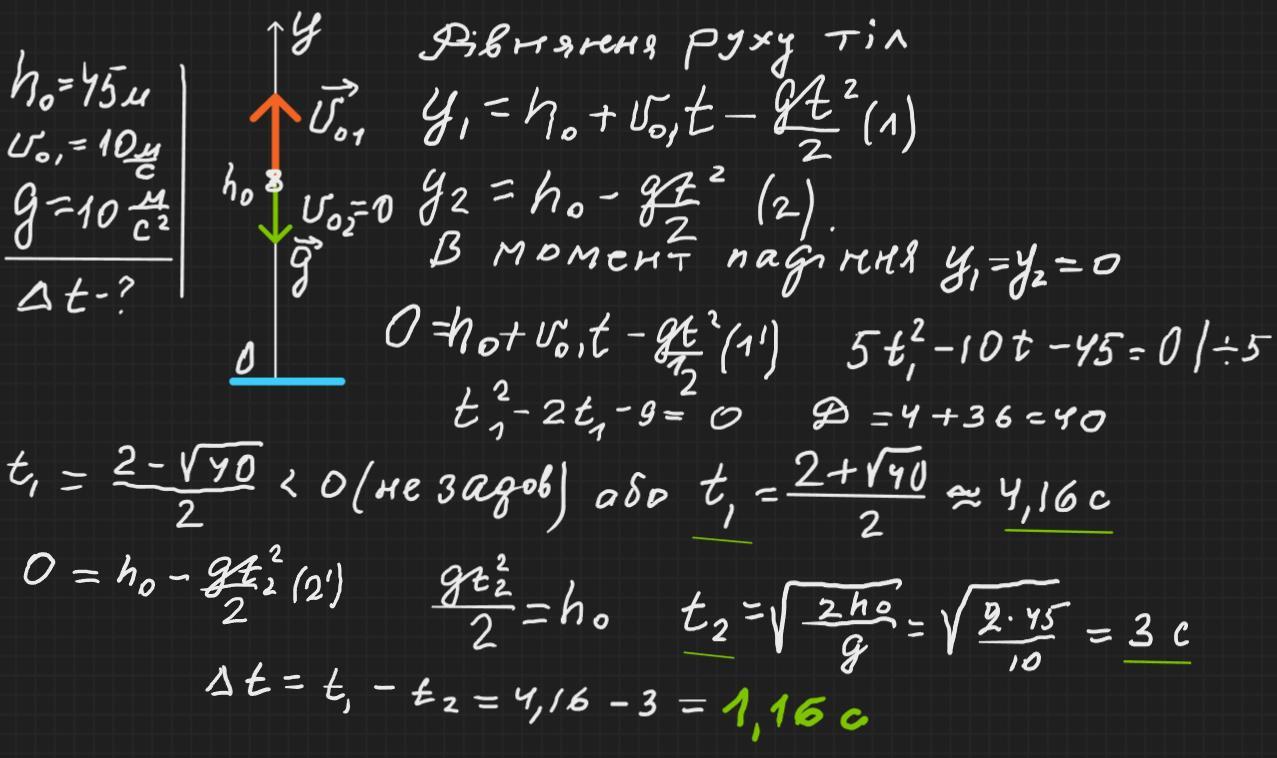 h₀=45м
v₀₁=10 м/с
g=10 м/с²
Δt-?
y
v⃗₀₁
h₀
v₀₂=0
g⃗
0
Рівняння руху тіл
y₁ = h₀ + v₀₁t − gt²/2 (1)
y₂ = h₀ - gt²/2 (2).
В момент падіння y₁=y₂=0
0=h₀+v₀₁t − gt₁²/2 (1')
5t₁²−10t−45=0 /÷5
t₁²−2t₁−9=0
D=4+36=40
t₁ = (2−√40)/2 < 0 (не задов) або t₁ = (2+√40)/2 ≈ 4,16 с
0 = h₀ − gt₂²/2 (2')
gt₂²/2 = h₀
t₂ = √(2h₀/g) = √(2·45/10) = 3 с
Δt = t₁ − t₂ = 4,16 − 3 = 1,16 с